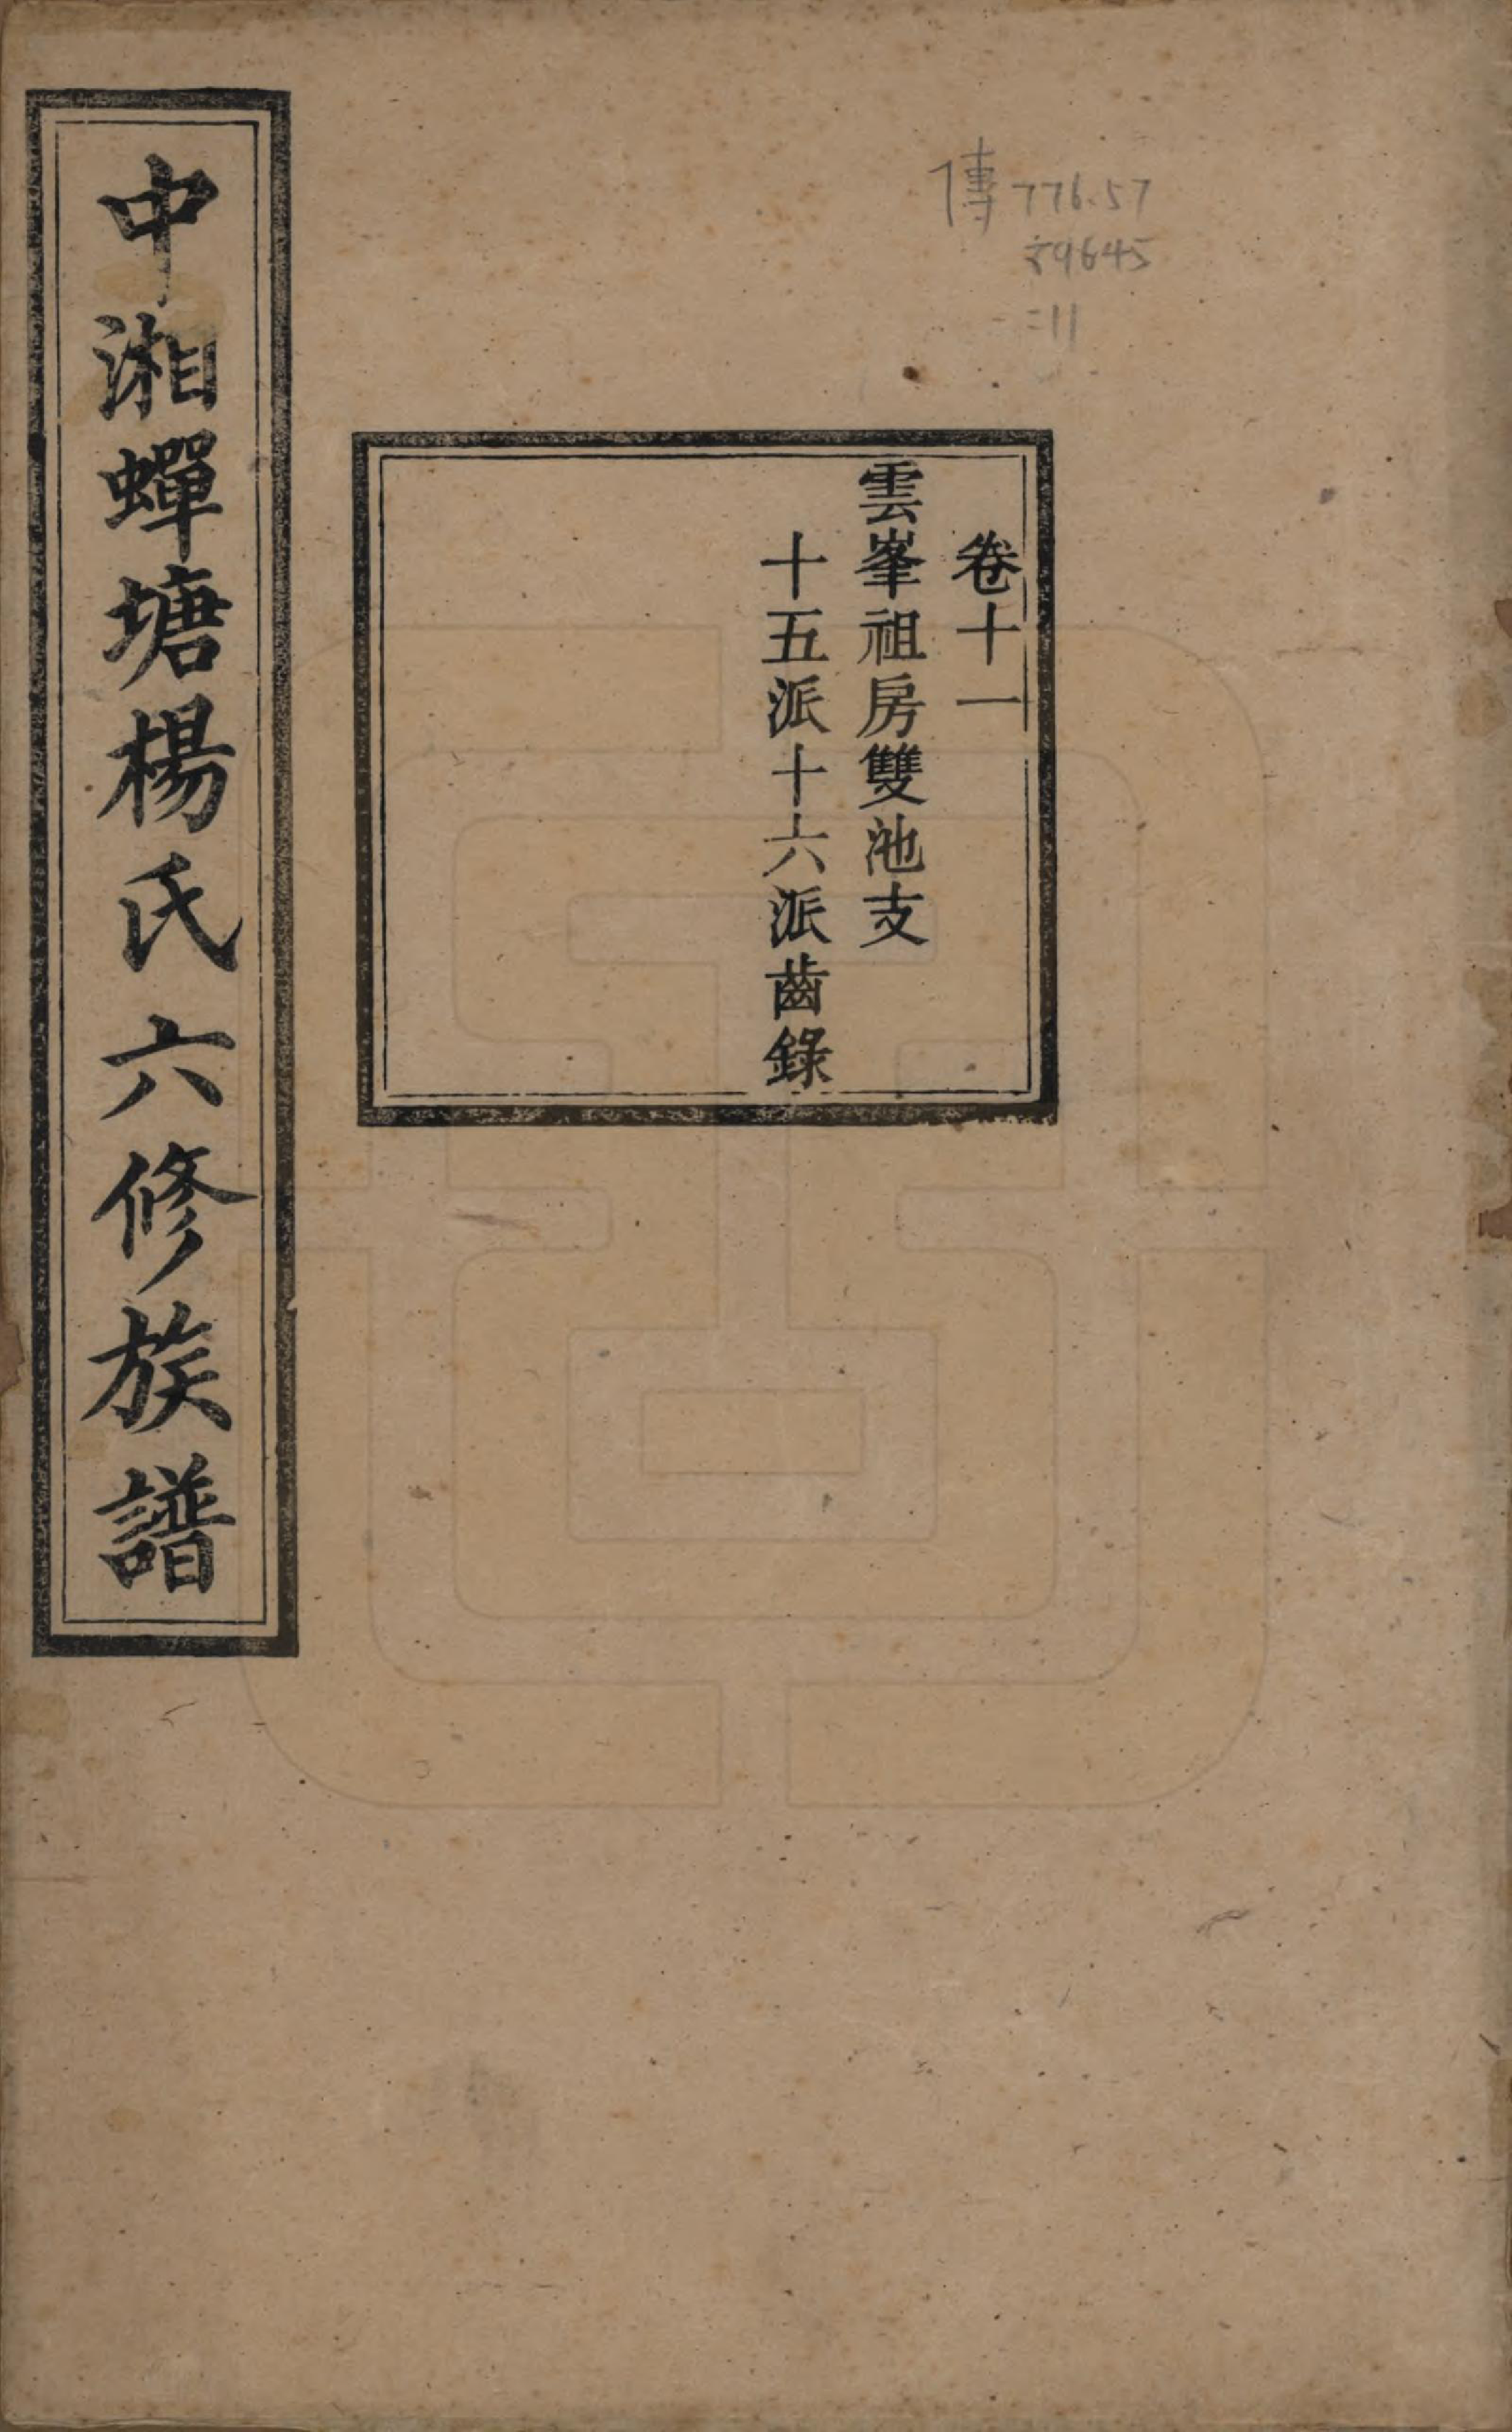 傳 776.57
89645
:11
卷十一
雲峯祖房雙池支
十五派十六派齒錄
中湘蟬塘楊氏六修族譜